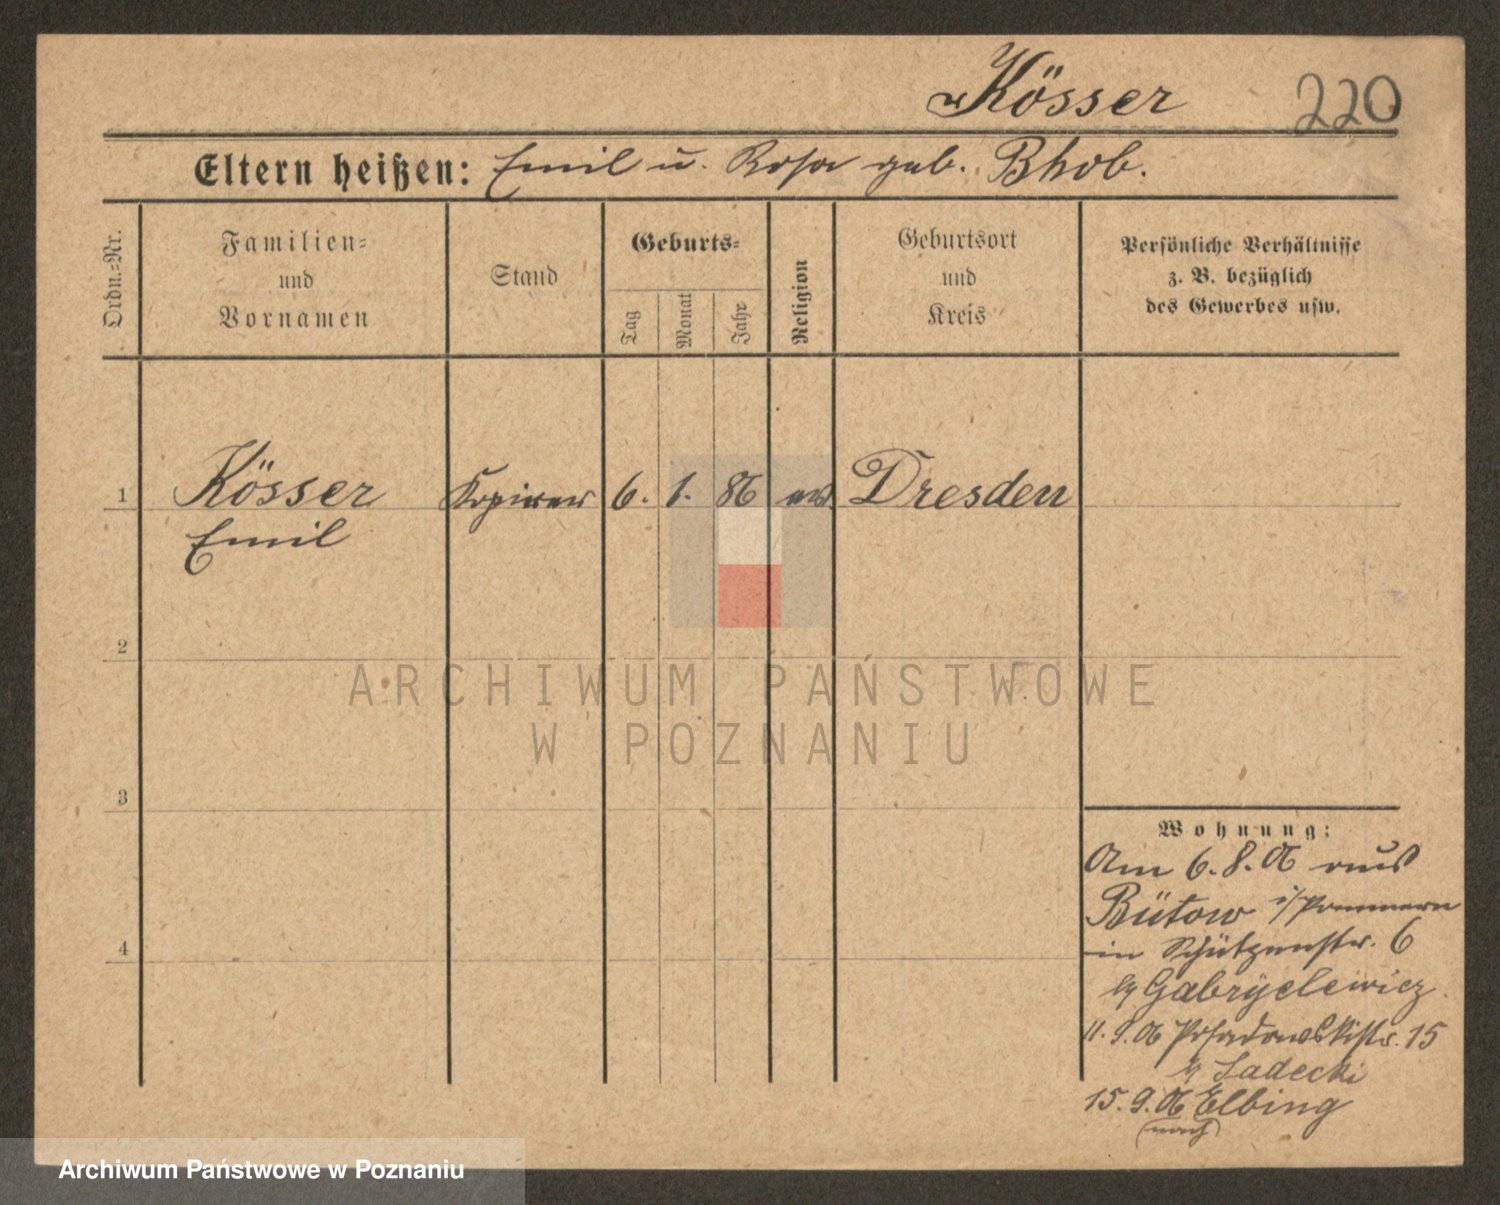 Kösser 220
Eltern heißen: Emil u. Rosa geb. Bhob.
Ordn.=Nr.
Familien=
und
Vornamen
Stand
Geburts=
Tag
Monat
Jahr
Religion
Geburtsort
und
Kreis
Persönliche Verhältnisse
z. B. bezüglich
des Gewerbes usw.
1 Kösser 6. 1. 86 ev. Dresden
Emil
2
3
4
Wohnung:
Am 6.8.06 aus
Bütow i/Pommern
in Schützenstr. 6
b/ Gabryelewicz.
11.9.06 Posadowskistr. 15
b/ Ladecki
15.9.06 Elbing
(nach)
ARCHIWUM PAŃSTWOWE
W POZNANIU
Archiwum Państwowe w Poznaniu